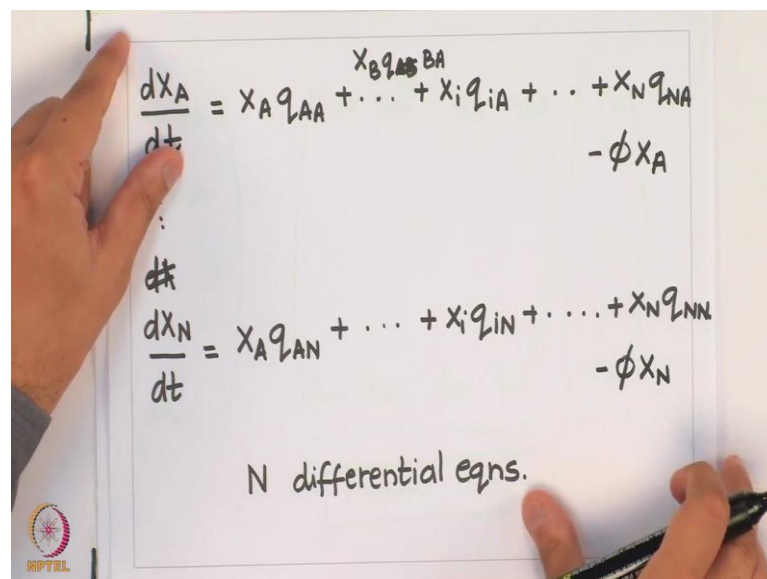 x_B q_BA
dx_A/dt = x_A q_AA + ... + x_i q_iA + .. + x_N q_NA
- φ x_A
:
dx_N/dt = x_A q_AN + ... + x_i q_iN + .... + x_N q_NN
- φ x_N
N differential eqns.
NPTEL